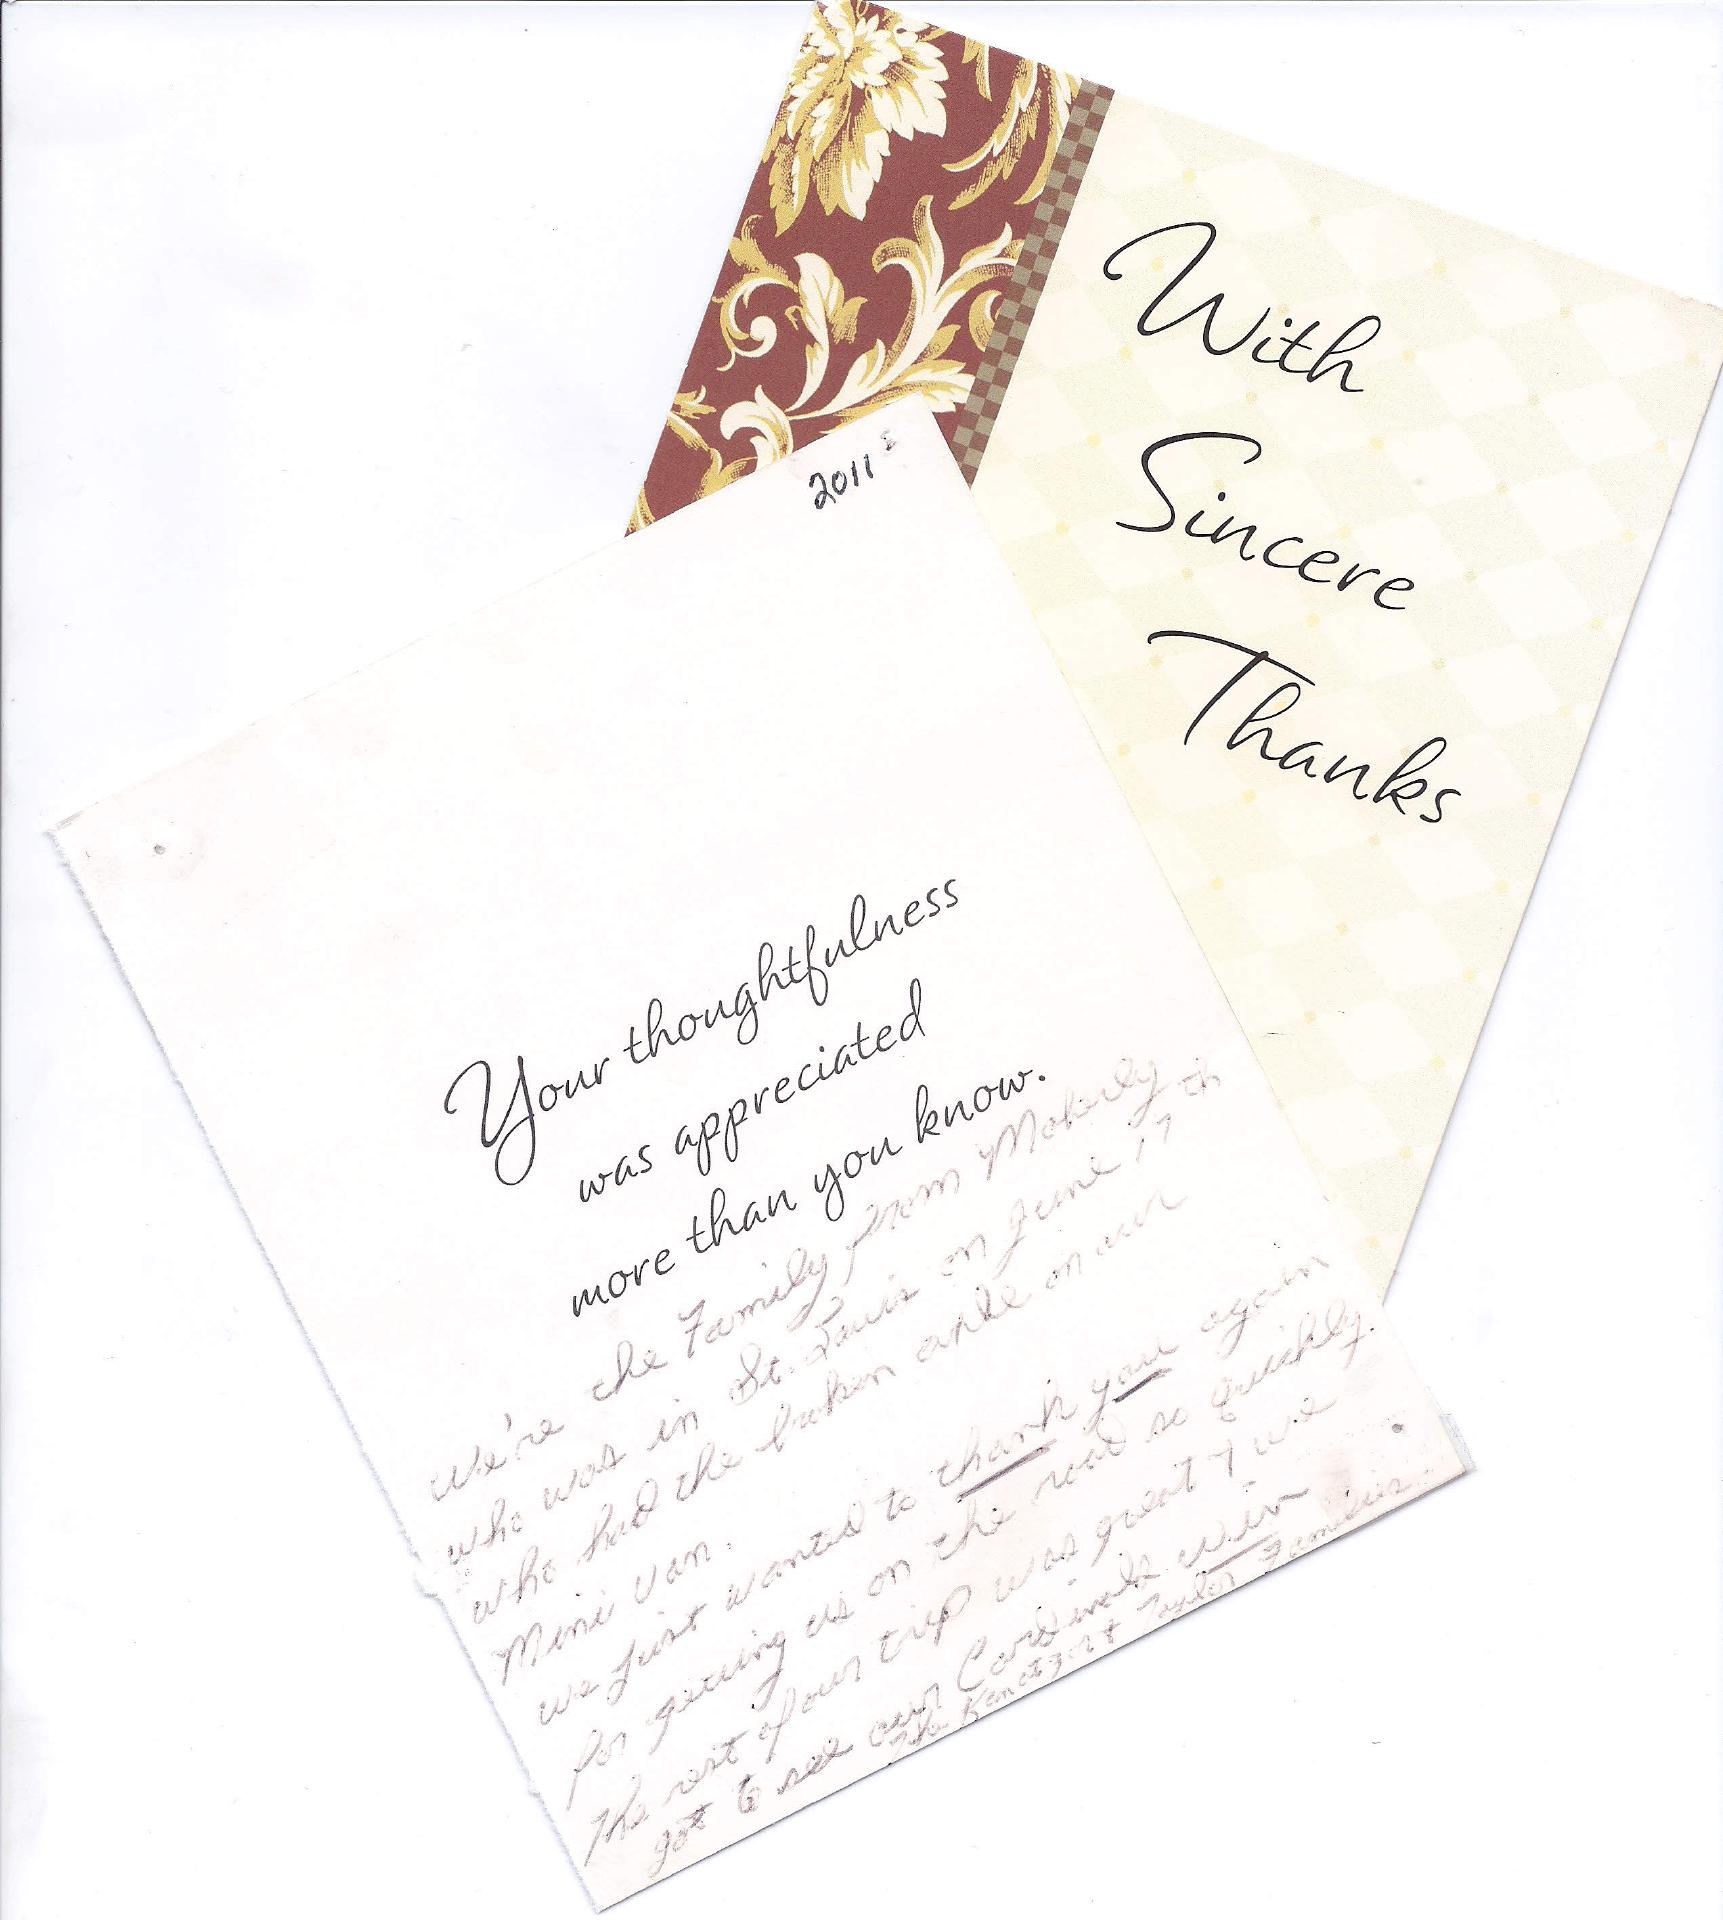 With
Sincere
Thanks
2011
Your thoughtfulness
was appreciated
more than you know.
We're the Family from Moberly
who was in St. Louis on June 17th
who had the broken axle on our
Mini Van.
we just wanted to thank you again
for getting us on the road so quickly.
The rest of our trip was great & we
got to see our Cardinals win
The & Taylor Families